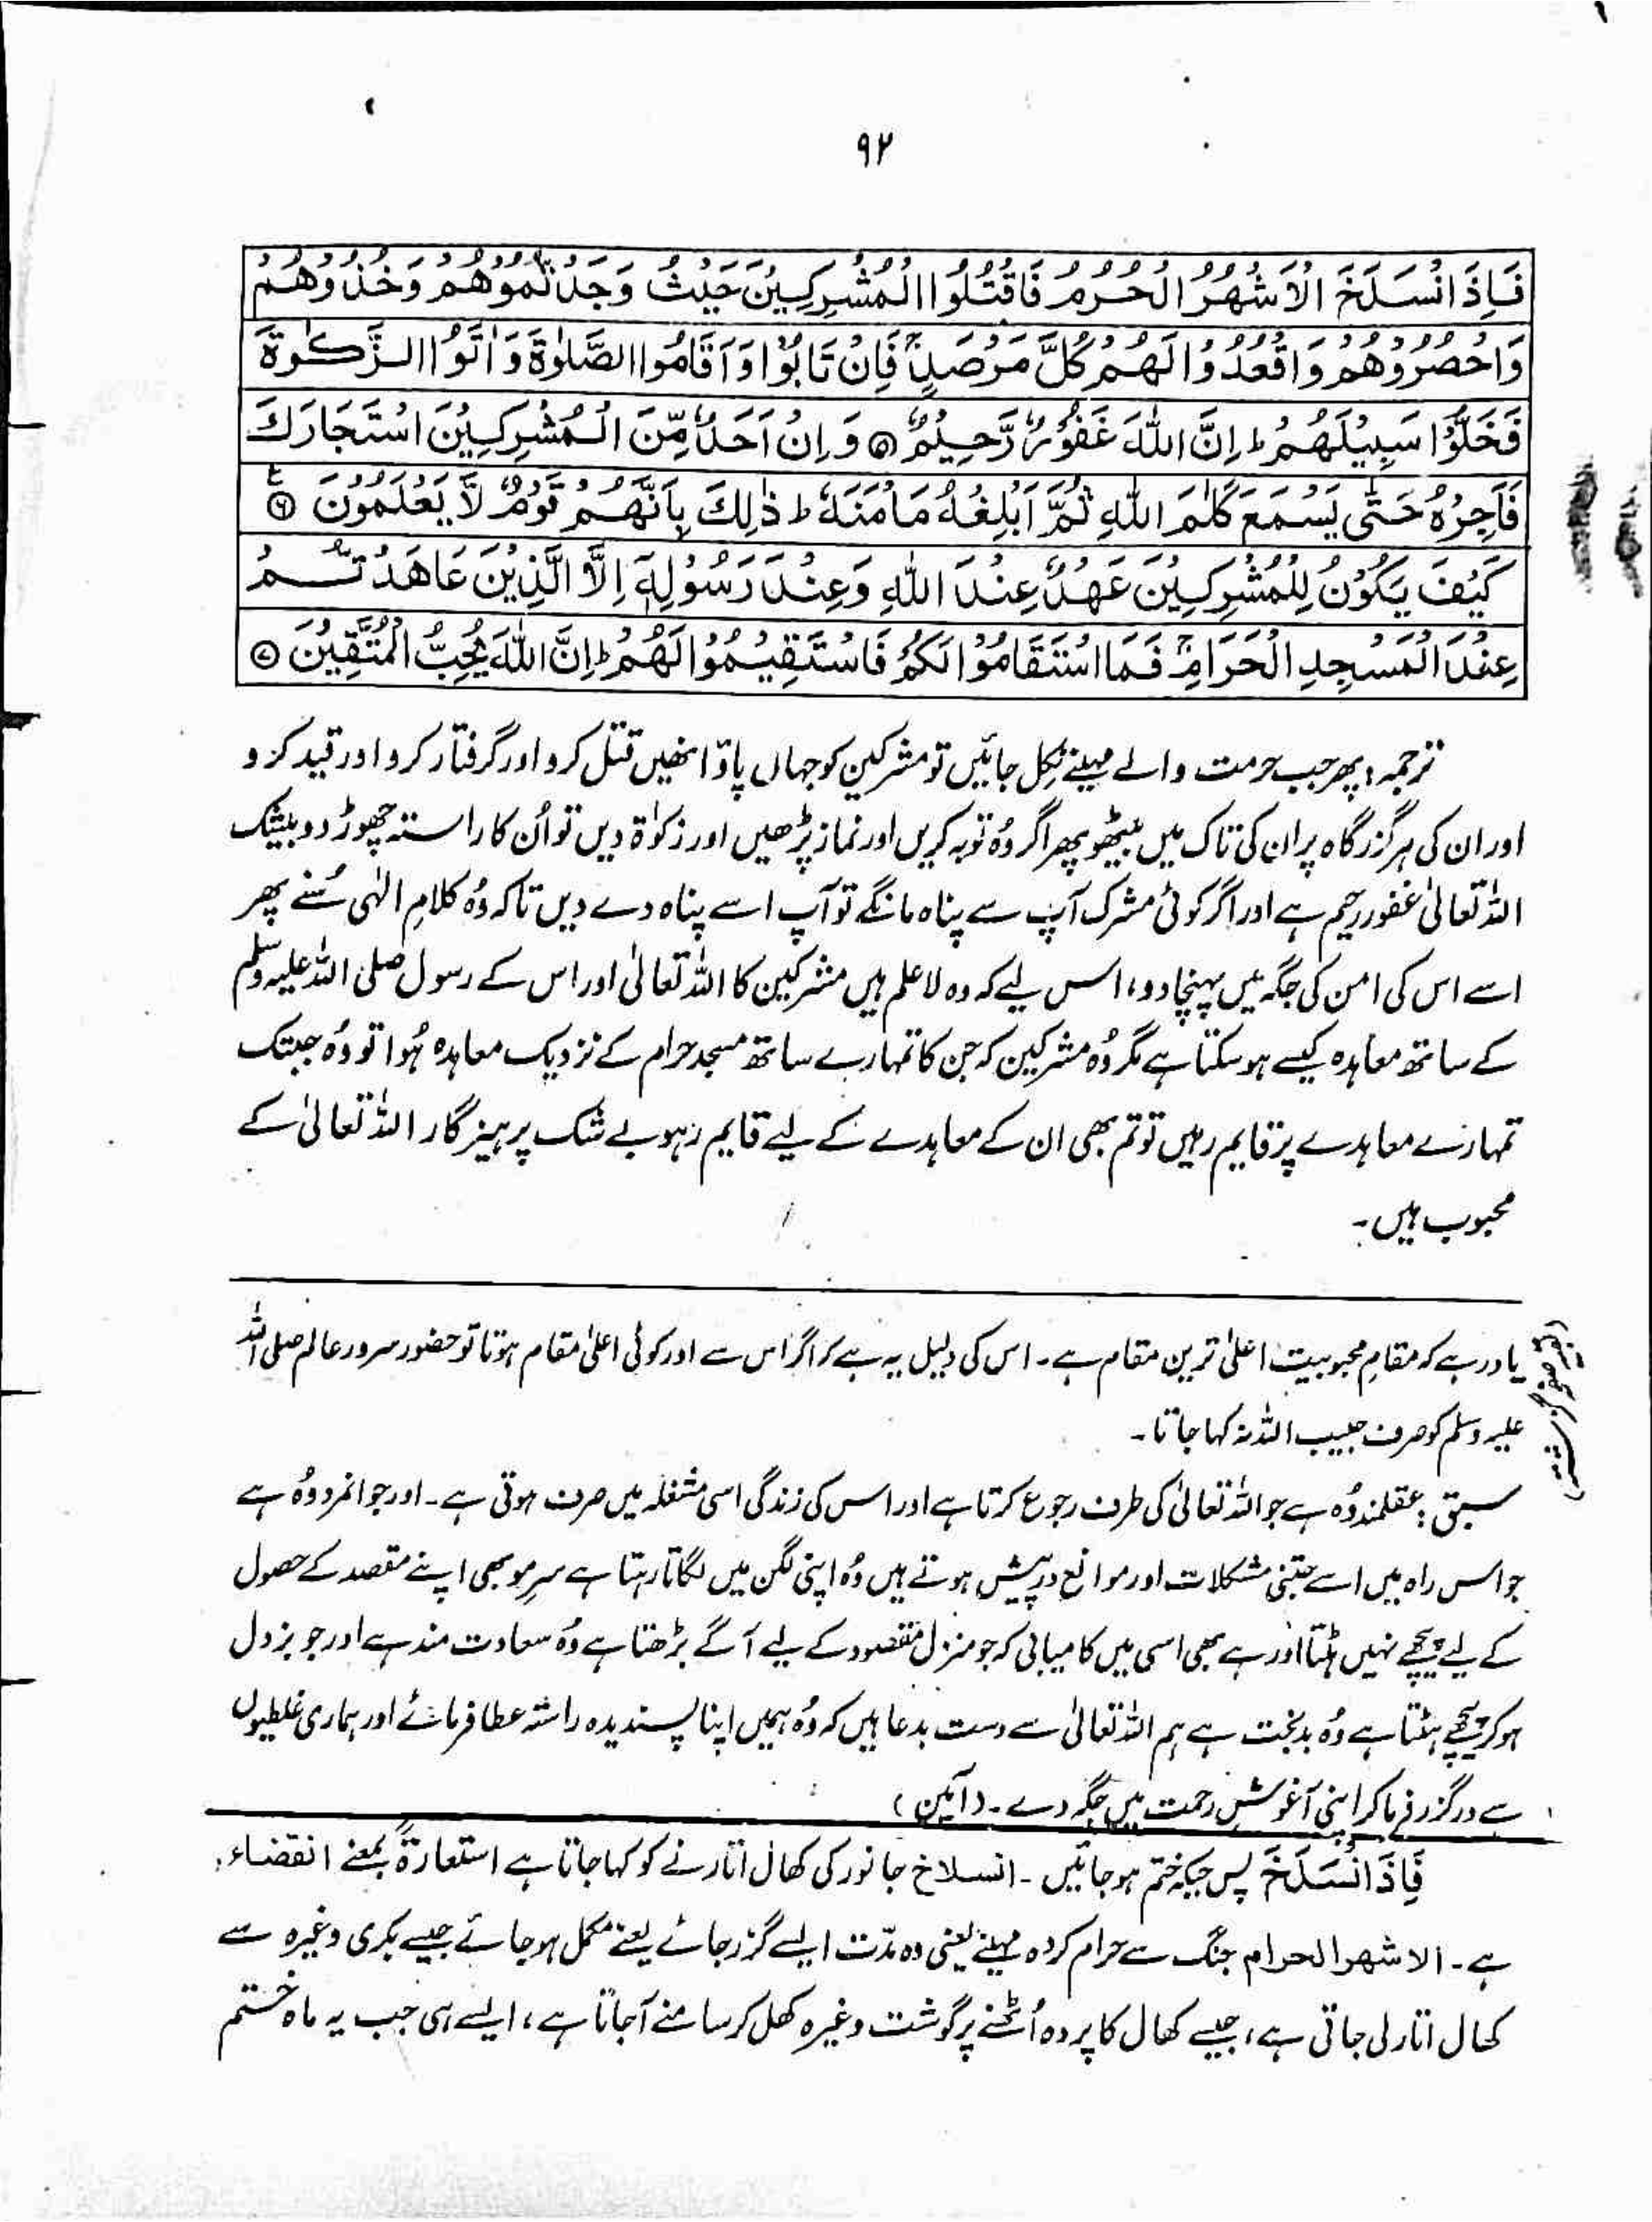 ۹۲
فَاِذَا انْسَلَخَ الْاَشْهُرُ الْحُرُمُ فَاقْتُلُوا الْمُشْرِكِيْنَ حَيْثُ وَجَدْتُّمُوْهُمْ وَخُذُوْهُمْ
وَاحْصُرُوْهُمْ وَاقْعُدُوْا لَهُمْ كُلَّ مَرْصَدٍ ۚ فَاِنْ تَابُوْا وَاَقَامُوا الصَّلٰوةَ وَاٰتَوُا الزَّكٰوةَ
فَخَلُّوْا سَبِيْلَهُمْ ؕ اِنَّ اللّٰهَ غَفُوْرٌ رَّحِيْمٌ ۵ وَاِنْ اَحَدٌ مِّنَ الْمُشْرِكِيْنَ اسْتَجَارَكَ
فَاَجِرْهُ حَتّٰى يَسْمَعَ كَلٰمَ اللّٰهِ ثُمَّ اَبْلِغْهُ مَاْمَنَهٗ ؕ ذٰلِكَ بِاَنَّهُمْ قَوْمٌ لَّا يَعْلَمُوْنَ ۶ ع
كَيْفَ يَكُوْنُ لِلْمُشْرِكِيْنَ عَهْدٌ عِنْدَ اللّٰهِ وَعِنْدَ رَسُوْلِهٖۤ اِلَّا الَّذِيْنَ عَاهَدْتُّمْ
عِنْدَ الْمَسْجِدِ الْحَرَامِ ۚ فَمَا اسْتَقَامُوْا لَكُمْ فَاسْتَقِيْمُوْا لَهُمْ ؕ اِنَّ اللّٰهَ يُحِبُّ الْمُتَّقِيْنَ ۷
ترجمہ: پھر جب حرمت والے مہینے نکل جائیں تو مشرکین کو جہاں پاؤ انھیں قتل کرو اور گرفتار کرو اور قید کرو
اور ان کی ہر گزرگاہ پر ان کی تاک میں بیٹھو پھر اگر وُہ توبہ کریں اور نماز پڑھیں اور زکوٰۃ دیں تو اُن کا راستہ چھوڑ دو بیشک
اللہ تعالیٰ غفور رحیم ہے اور اگر کوئی مشرک آپ سے پناہ مانگے تو آپ اسے پناہ دے دیں تاکہ وُہ کلامِ الٰہی سُنے پھر
اسے اس کی امن کی جگہ میں پہنچا دو، اس لیے کہ وہ لا علم ہیں مشرکین کا اللہ تعالیٰ اور اس کے رسول صلی اللہ علیہ وسلم
کے ساتھ معاہدہ کیسے ہو سکتا ہے مگر وُہ مشرکین کہ جن کا تمہارے ساتھ مسجد حرام کے نزدیک معاہدہ ہُوا تو وُہ جبتک
تمہارے معاہدے پر قایم رہیں تو تم بھی ان کے معاہدے کے لیے قایم رہو بے شک پرہیزگار اللہ تعالیٰ کے
محبوب ہیں۔
(بقیہ صفحہ گزشتہ)
یاد رہے کہ مقامِ محبوبیت اعلیٰ ترین مقام ہے۔ اس کی دلیل یہ ہے کہ اگر اس سے اور کوئی اعلیٰ مقام ہوتا تو حضور سرور عالم صلی اللہ
علیہ وسلم کو صرف حبیب اللہ نہ کہا جاتا۔
سبق: عقلمند وُہ ہے جو اللہ تعالیٰ کی طرف رجوع کرتا ہے اور اس کی زندگی اسی مشغلہ میں صرف ہوتی ہے۔ اور جوانمرد وُہ ہے
جو اس راہ میں اسے جتنی مشکلات اور موانع درپیش ہوتے ہیں وُہ اپنی لگن میں لگاتا رہتا ہے سرِ مو بھی اپنے مقصد کے حصول
کے لیے پیچھے نہیں ہٹتا اور ہے بھی اسی میں کامیابی کہ جو منزل مقصود کے لیے آگے بڑھتا ہے وُہ سعادت مند ہے اور جو بزدل
ہو کر پیچھے ہٹتا ہے وُہ بدبخت ہے ہم اللہ تعالیٰ سے دست بدعا ہیں کہ وُہ ہمیں اپنا پسندیدہ راستہ عطا فرمائے اور ہماری غلطیوں
سے درگزر فرما کر اپنی آغوشِ رحمت میں جگہ دے۔ (آمین)
فَاِذَا انْسَلَخَ پس جبکہ ختم ہو جائیں۔ انسلاخ جانور کی کھال اتارنے کو کہا جاتا ہے استعارۃً بمعنے انقضاء
ہے۔ الاشھر الحرام جنگ سے حرام کردہ مہینے یعنی وہ مدّت ایسے گزر جائے یعنے مکمل ہو جائے جیسے بکری وغیرہ سے
کھال اتار لی جاتی ہے، جیسے کھال کا پردہ اُٹھنے پر گوشت وغیرہ کھل کر سامنے آجاتا ہے، ایسے ہی جب یہ ماہ ختم